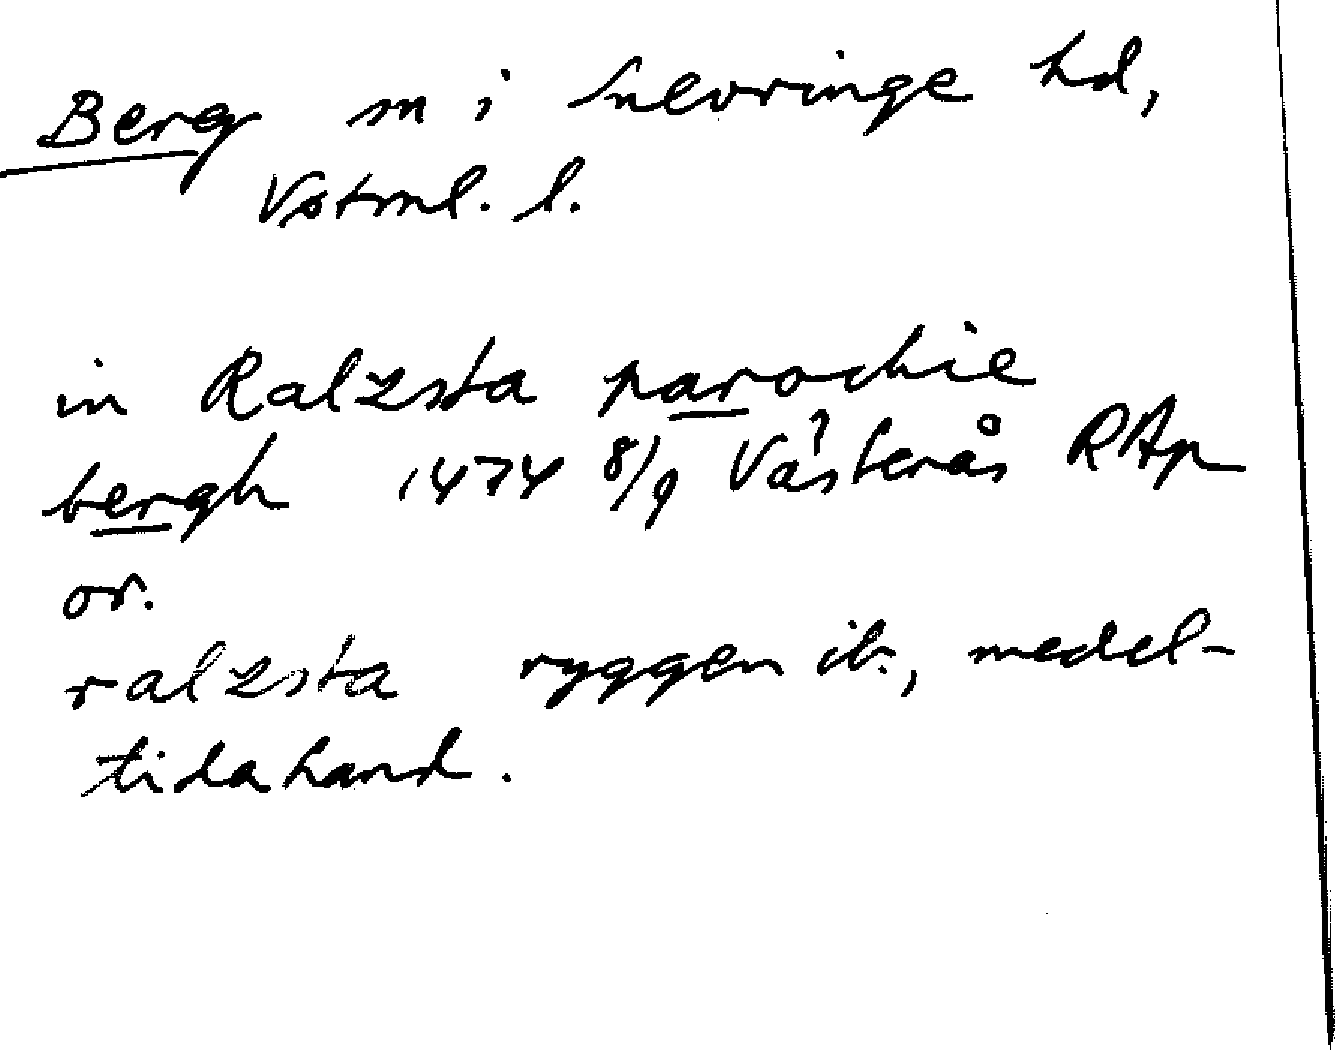 Berg sn i Snevringe hd,
Vstml. l.
in Ralzsta parochie
bergh 1474 8/9 Västerås RAp
or.
ralzsta ryggen ib., medel-
tida hand.